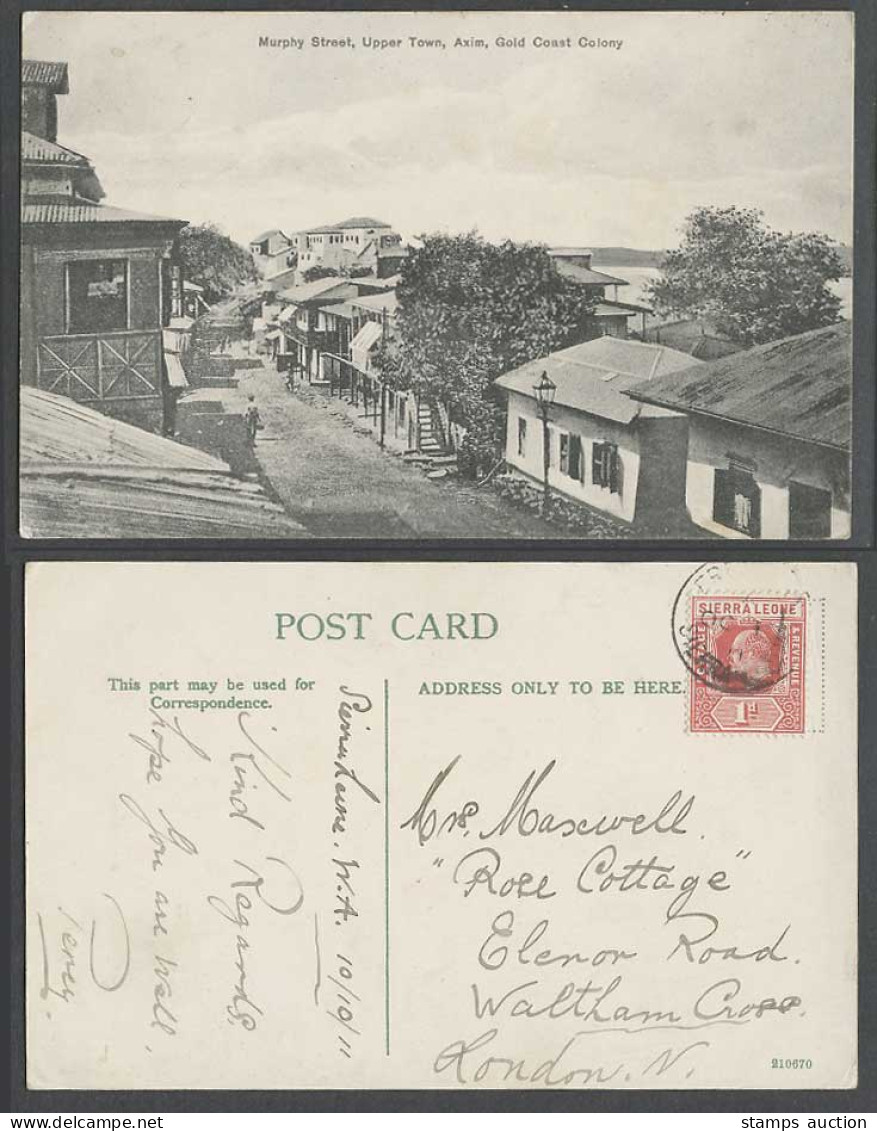 Murphy Street, Upper Town, Axim, Gold Coast Colony
POST CARD
This part may be used for
Correspondence.
ADDRESS ONLY TO BE HERE.
SIERRA LEONE
& REVENUE
1D
Sierra Leone. W.A. 10/10/11
Kind Regards.
hope you are well.
Percy.
Mrs. Maxwell.
"Rose Cottage"
Elenor Road.
Waltham Cross.
London. N.
210670
stamps auction